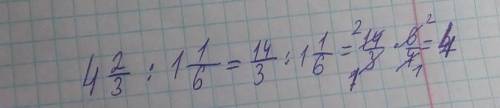 4 2/3 : 1 1/6 = 14/3 : 1 1/6 = 14/3 · 6/7 = 4